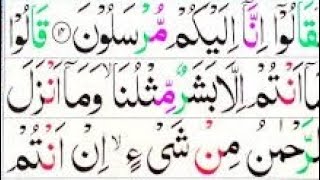 فَقَالُوْۤا اِنَّاۤ اِلَيْكُمْ مُّرْسَلُوْنَ ﴿۱۴﴾ قَالُوْا
مَاۤ اَنْتُمْ اِلَّا بَشَرٌ مِّثْلُنَا ۙ وَمَاۤ اَنْزَلَ
الرَّحْمٰنُ مِنْ شَيْءٍ ۙ اِنْ اَنْتُمْ